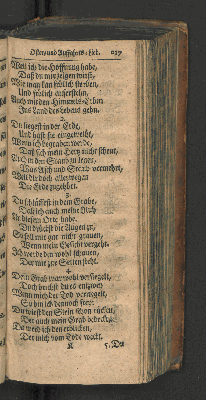 Oster, und Auffahrts-Lied. 217
Weil ich die Hoffnung habe,
Daß du mir zeigen wirst,
Wie man kan frölich sterben,
Und frölich auferstehn,
Auch mit den Himmels-Erben
Ins Land des Lebens gehn.
2.
Du liegest in der Erde,
Und hast sie eingeweiht,
Wenn ich begraben werde,
Daß sich mein Hertz nicht scheut,
Auch in den Staub zu legen,
Was Asch und Staub vermehrt,
Weil dir doch allerwegen
Die Erde zugehört.
3.
Du schläfest in dem Grabe,
Daß ich auch meine Ruh
An diesem Orte habe,
Du drückst die Augen zu,
So soll mir gar nicht grauen,
Wenn mein Gesicht vergeht,
Ich werde den wohl schauen,
Der mir zur Seiten steht.
4.
Dein Grab war wohl versiegelt,
Doch brichst du es entzwey,
Wenn mich der Tod verriegelt,
So bin ich dennoch frey:
Du wirst den Stein schon rücken,
Der auch mein Grab bedeckt,
Da werd ich den erblicken,
Der mich vom Tode weckt.
K 5. Du